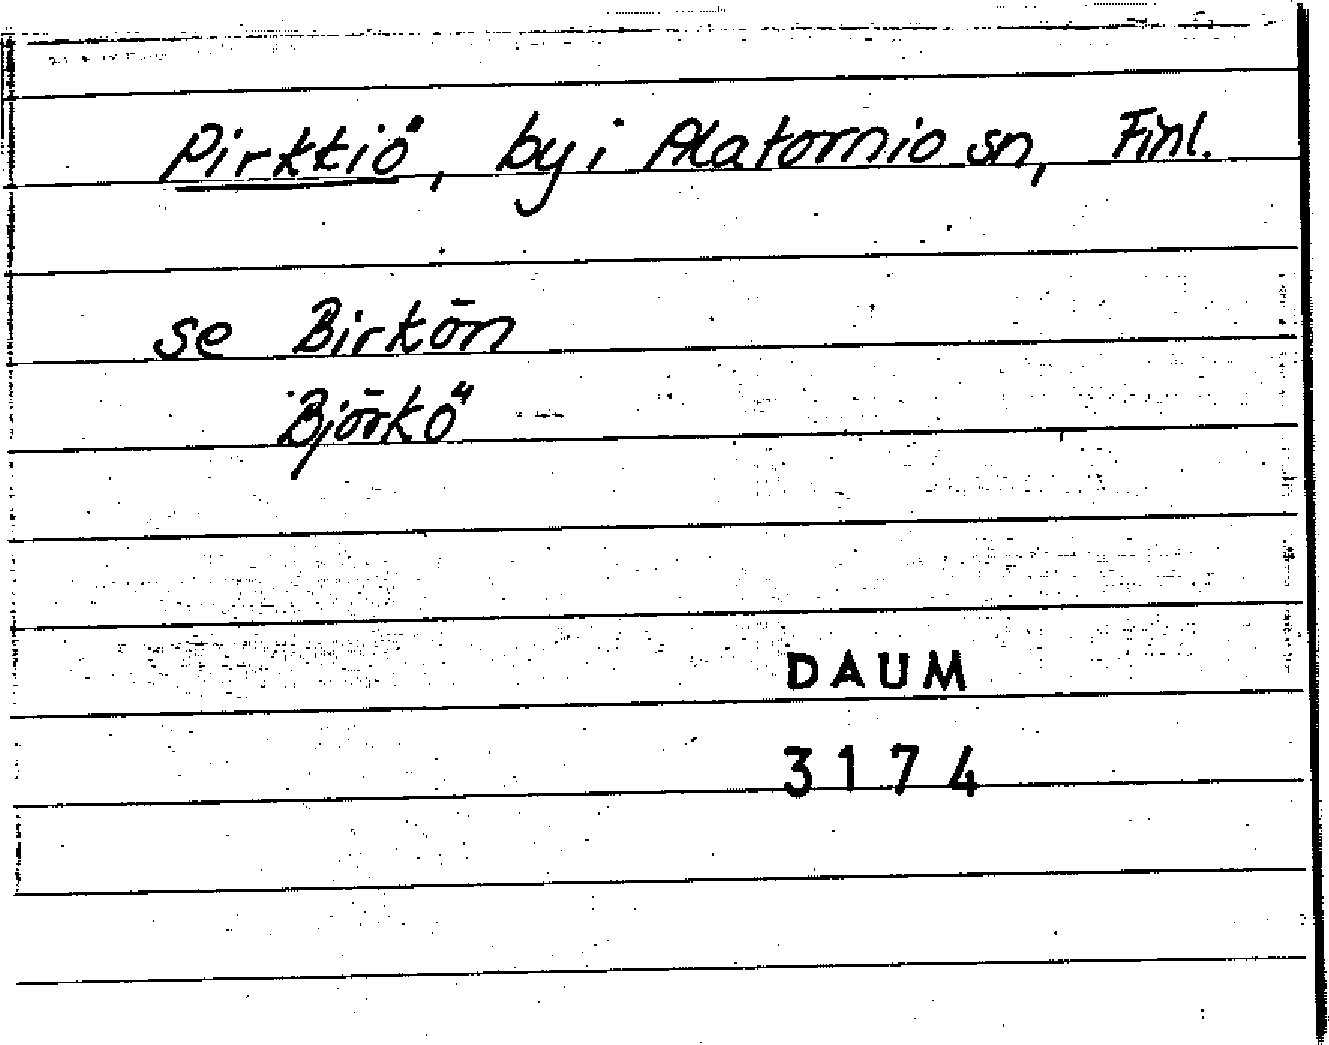 Pirkkiö, by i Alatornio sn, Finl.
se Birkön
Björkö
DAUM
3174